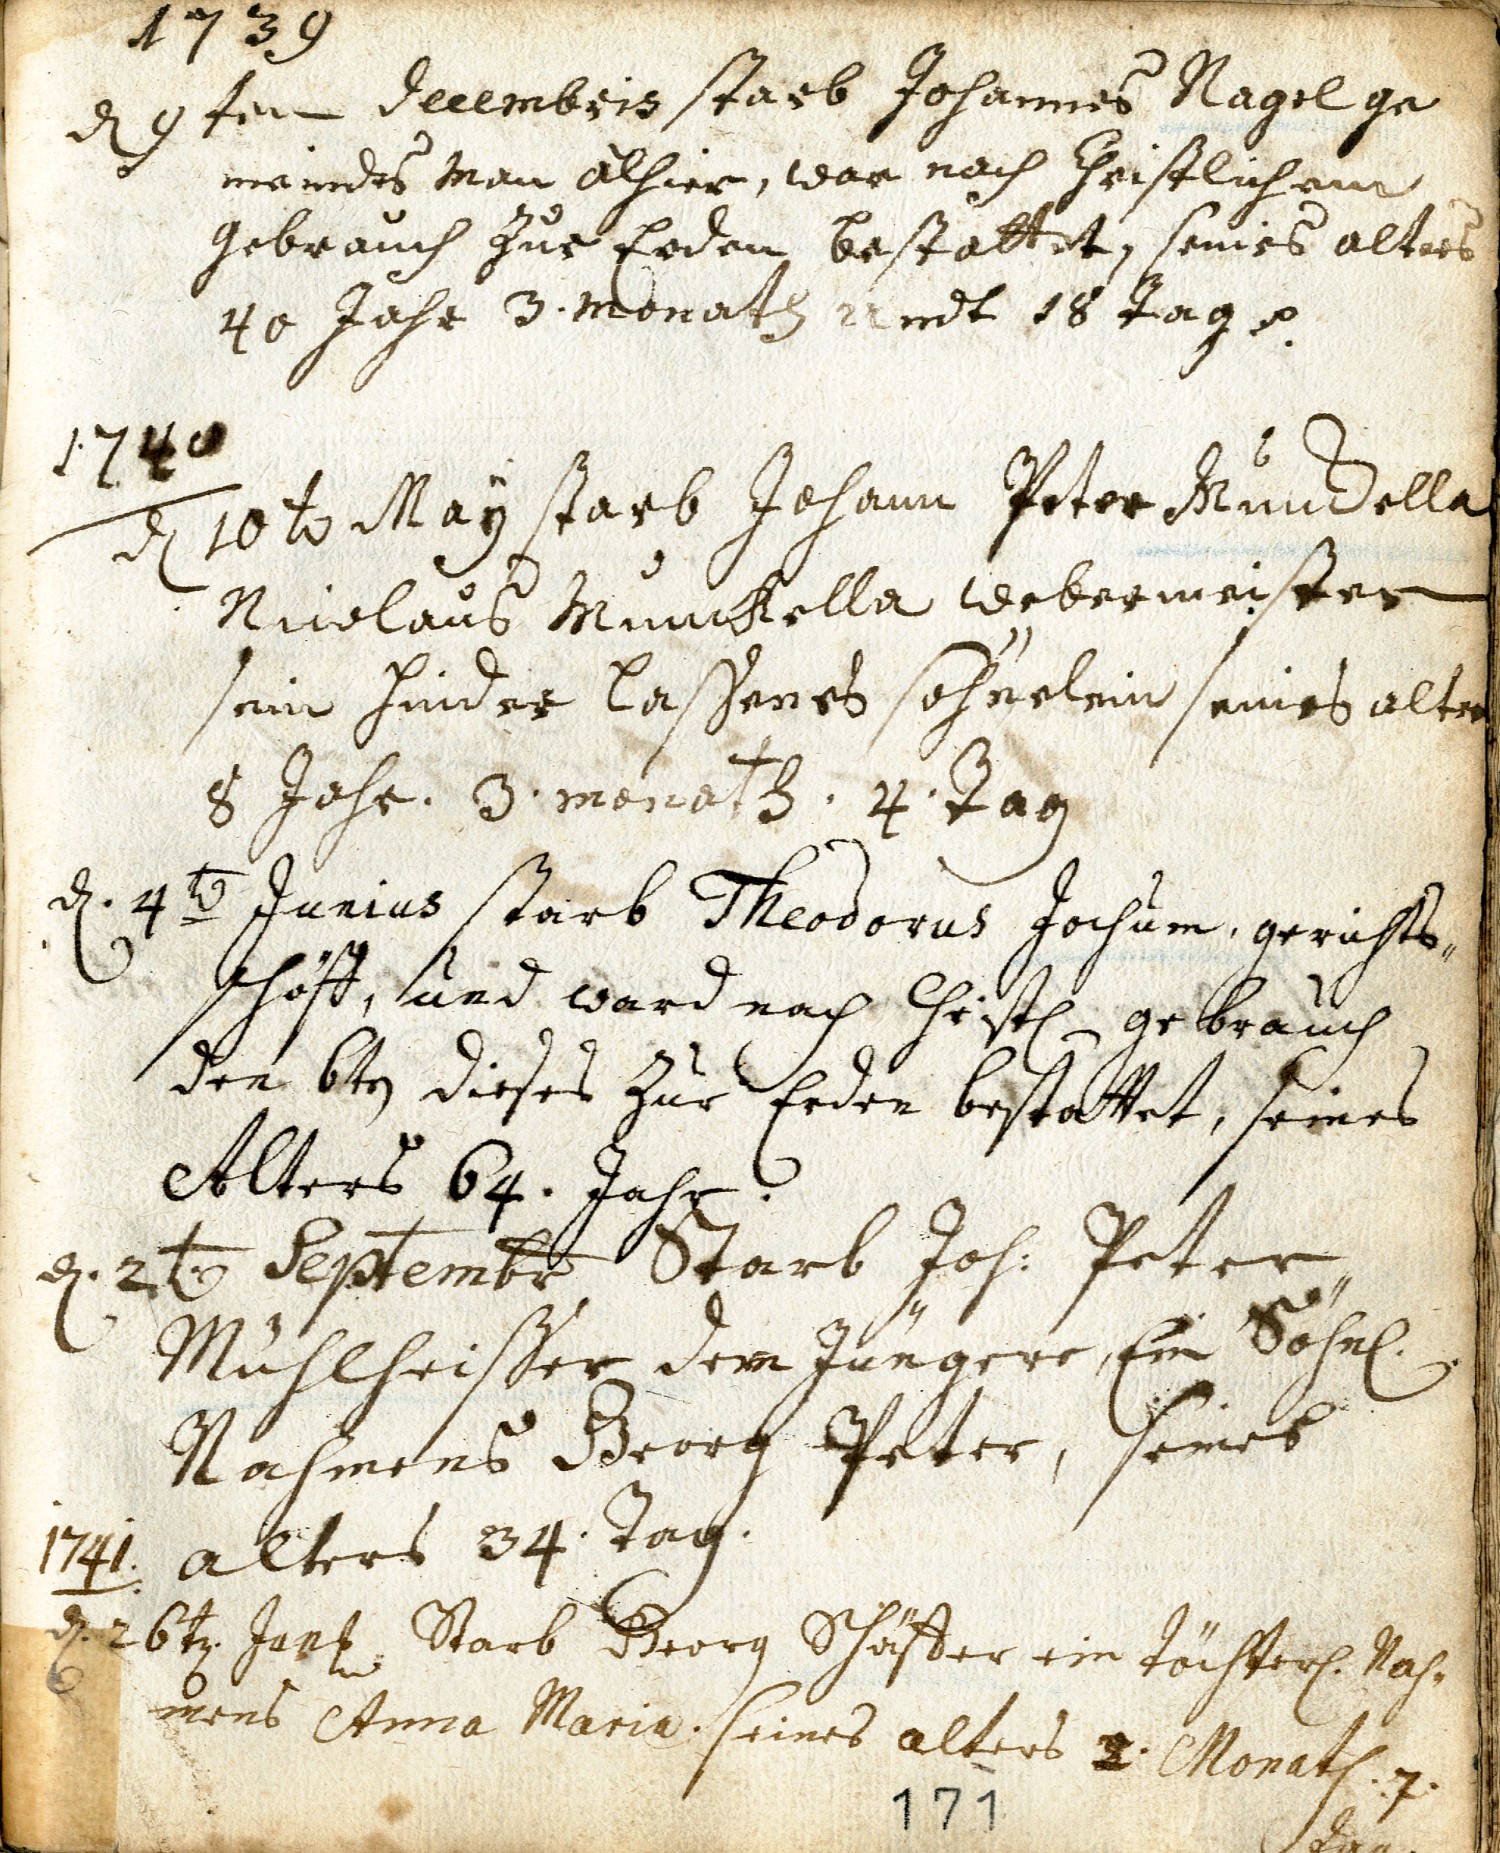 1739
d 9 ten decembris starb Johannes Nagel ge
meindes Man alhier, war nach Christlichem
gebrauch zur Erden bestattet, seines alters
40 Jahr 3. monath undt 18 Tage.
1740
d 10t May starb Johann Peter Mundella
Nicolaus Munckella Webermeister
sein hinder lassenes söhnelein seines alters
8 Jahr. 3. monath. 4. Tag
d. 4t Junius starb Theodorus Jochum, gerichts„
schöff, und ward nach Christl gebrauch
den 6tn dieses zur Erden bestattet, seines
Alters 64. Jahr.
d. 2t Septembr Starb Joh: Peter
Mühlheisser dem Jüngere, Ein Söhnl.
Nahmens Georg Peter, seines
1741. alters 34. Tag.
d. 26t. Starb Georg Schäffer ein töchterl. Nah„
mens Anna Maria. seines alters 2. Monath. 7.
Tag.
171